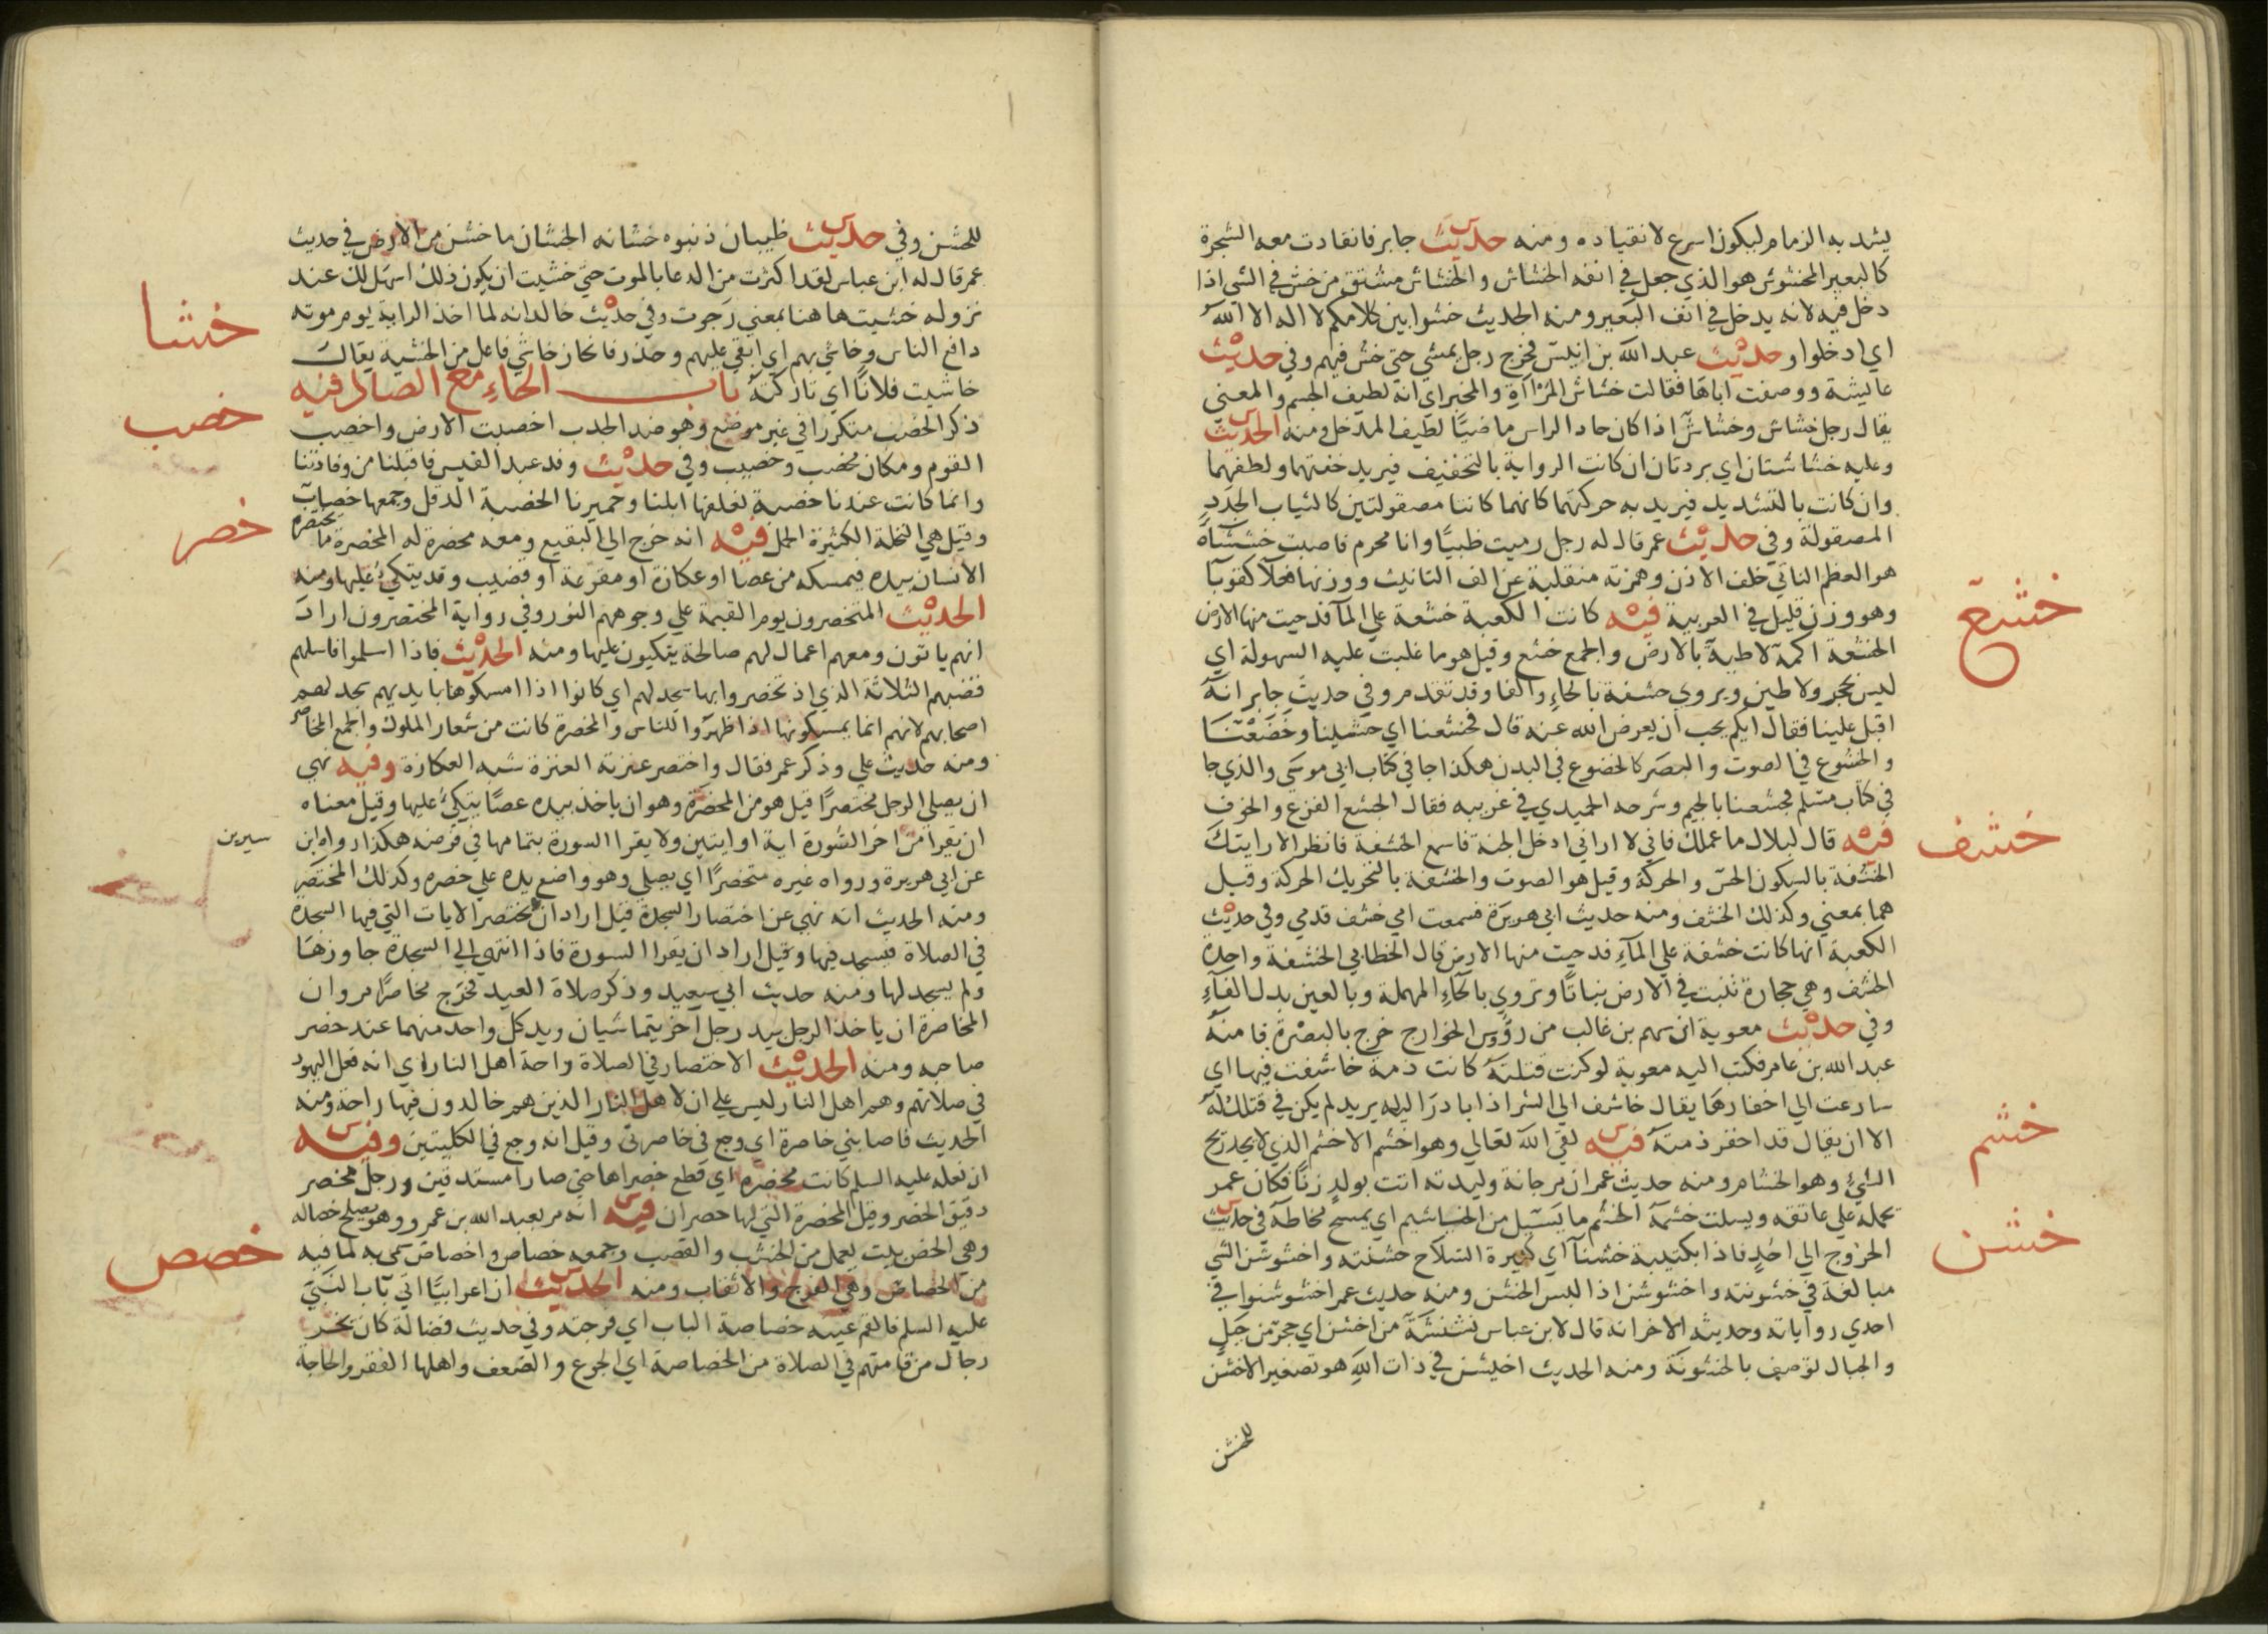 يشد به الزمام ليكون اسرع لانقياده ومنه حديث جابر فانقادت معه الشجرة
كالبعير المخشوش هو الذي جعل في انفه الخشاش والخشاش مشتق من خش في الشي اذا
دخل فيه لانه يدخل في انف البعير ومنه الحديث خشوا بين كلامكم لا اله الا الله
اي ادخلوا وحديث عبد الله بن انيس فخرج رجل يمشي حتي خش فيهم وفي حديث
عايشة ووصفت اباها فقالت خشاش المرااة والمخبر اي انه لطيف الجسم والمعني
يقال رجل خشاش وخشاش اذا كان حاد الراس ماضيا لطيف المدخل ومنه الحديث
وعليه خشاشتان اي بردتان ان كانت الرواية بالتخفيف فيريد خفتهما ولطفهما
وان كانت بالتشديد فيريد به حركتهما كانهما كانتا مصقولتين كالثياب الجدد
المصقولة وفي حديث عمر قال له رجل رميت ظبيا وانا محرم فاصبت خششاه
هو العظم الناتي خلف الاذن وهمزته منقلبة عن الف التانيث ووزنها فعلا كقوبا
وهو وزن قليل في العربية فيه كانت الكعبة خشعة علي الما فدحيت منها الارض
الخشعة اكمة لاطية بالارض والجمع خشع وقيل هو ما غلبت عليه السهولة اي
ليس بحجر ولا طين ويروي خشفة بالخاء والفا وقد تقدم وفي حديث جابر انه
اقبل علينا فقال ايكم يحب ان يعرض الله عنه قال فخشعنا اي خشينا وخضعنا
والخشوع في الصوت والبصر كالخضوع في البدن هكذا جا في كتاب ابي موسي والذي جا
في كتاب مسلم فجشعنا بالجيم وشرحه الحميدي في غريبه فقال الجشع الفزع والخوف
فيه قال لبلال ما عملك فاني لا اراني ادخل الجنة فاسمع الخشفة فانظر الا رايتك
الخشفة بالسكون الحس والحركة وقيل هو الصوت والخشفة بالتحريك الحركة وقيل
هما بمعني وكذلك الخشف ومنه حديث ابي هريرة فسمعت امي خشف قدمي وفي حديث
الكعبة انها كانت خشفة علي الماء فدحيت منها الارض قال الخطابي الخشفة واحدة
الخشف وهي حجارة تنبت في الارض نباتا وتروي بالحاء المهملة وبالعين بدل الفاء
وفي حديث معوية ان سهم بن غالب من رؤس الخوارج خرج بالبصرة فامنه
عبد الله بن عامر فكتب اليه معوية لو كنت قتلته كانت ذمة خاشفت فيها اي
سارعت الي اخفارها يقال خاشف الي الشر اذا بادر اليه يريد لم يكن في قتلك له
الا ان يقال قد اخفر ذمته فيه لقي الله تعالي وهو اخشم الاخشم الذي لا يجد ريح
الشيء وهو الخشام ومنه حديث عمر ان مرجانة وليدته اتت بولد زنا فكان عمر
يحمله علي عاتقه ويسلت خشمه الخشم ما يسيل من الخياشيم اي يمسح مخاطه في حديث
الخروج الي احد فاذا بكتيبة خشنا اي كثيرة السلاح خشنته واخشوشن الشي
مبالغة في خشونته واخشوشن اذا لبس الخشن ومنه حديث عمر اخشوشنوا في
احدي رواياته وحديثه الاخر انه قال لابن عباس نشنشة من اخشن اي حجر من جبل
والجبال توصف بالخشونة ومنه الحديث اخيشن في ذات الله هو تصغير الاخشن
للخشن
خشع
خشف
خشم
خشن
للخشن وفي حديث ظبيان ذنبوه خشانه الخشان ما خشن من الارض في حديث
عمر قال له ابن عباس لقد اكثرت من الدعا بالموت حتي خشيت ان يكون ذلك اسهل لك عند
نزوله خشيت هاهنا بمعني رجوت وفي حديث خالد انه لما اخذ الراية يوم موته
دافع الناس وخاشي بهم اي ابقي عليهم وحذر فانحاز خاشي فاعل من الخشية يقال
خاشيت فلانا اي تاركته باب الخاء مع الصاد فيه
ذكر الخصب متكررا في غير موضع وهو ضد الجدب اخصبت الارض واخصب
القوم ومكان مخصب وخصيب وفي حديث وفد عبد القيس فاقبلنا من وفادتنا
وانما كانت عندنا خصبة نعلفها ابلنا وحميرنا الخصبة الدقل وجمعها خصاب
وقيل هي النخلة الكثيرة الحمل فيه انه خرج الي البقيع ومعه مخصرة له المخصرة ما يختصره
الانسان بيده فيمسكه من عصا او عكازة او مقرعة او قضيب وقد يتكئ عليها ومنه
الحديث المتخصرون يوم القيمة علي وجوههم النور وفي رواية المختصرون اراد
انهم ياتون ومعهم اعمال لهم صالحة يتكيون عليها ومنه الحديث فاذا اسلموا فاسلهم
قضبهم الثلاثة الذي اذ تخصروا بها سجد لهم اي كانوا اذا امسكوها بايديهم سجد لهم
اصحابهم لانهم انما يمسكونها اذا ظهروا للناس والمخصرة كانت من شعار الملوك والجمع المخاصر
ومنه حديث علي وذكر عمر فقال واختصر عنزته العنزة شبه العكازة وفيه نهي
ان يصلي الرجل مختصرا قيل هو من المخصرة وهو ان ياخذ بيده عصا يتكئ عليها وقيل معناه
ان يقرا من اخر السورة اية او ايتين ولا يقرا السورة بتمامها في فرضه هكذا رواه ابن سيرين
عن ابي هريرة ورواه غيره متخصرا اي يصلي وهو واضع يده علي خصره وكذلك المختصر
ومنه الحديث انه نهي عن اختصار السجدة قيل اراد ان يختصر الايات التي فيها السجدة
في الصلاة فيسجد فيها وقيل اراد ان يقرا السورة فاذا انتهي الي السجدة جاوزها
ولم يسجد لها ومنه حديث ابي سعيد وذكر صلاة العيد فخرج مخاصرا مروان
المخاصرة ان ياخذ الرجل بيد رجل اخر يتماشيان ويد كل واحد منهما عند خصر
صاحبه ومنه الحديث الاختصار في الصلاة راحة اهل النار اي انه فعل اليهود
في صلاتهم وهم اهل النار ليس علي ان لاهل النار الذين هم خالدون فيها راحة ومنه
الحديث فاصابني خاصرة اي وجع في خاصرتي وقيل انه وجع في الكليتين وفيه
ان نعله عليه السلم كانت مخصرة اي قطع خصراها حتي صارا مستدقين ورجل مخصر
دقيق الخصر وقيل المخصرة التي لها خصران فيه انه مر بعبد الله بن عمرو وهو يصلح خصا له
وهي الخص بيت يعمل من الخشب والقصب وجمعه خصاص واخصاص سمي به لما فيه
من الخصاص وهي الفرج والاثقاب ومنه الحديث ان اعرابيا اتي باب النبي
عليه السلم فالقم عينه خصاصة الباب اي فرجته وفي حديث فضالة كان يخر
رجال من قامتهم في الصلاة من الخصاصة اي الجوع والضعف واهلها الفقر والحاجة
خشا
خصب
خصر
خصص